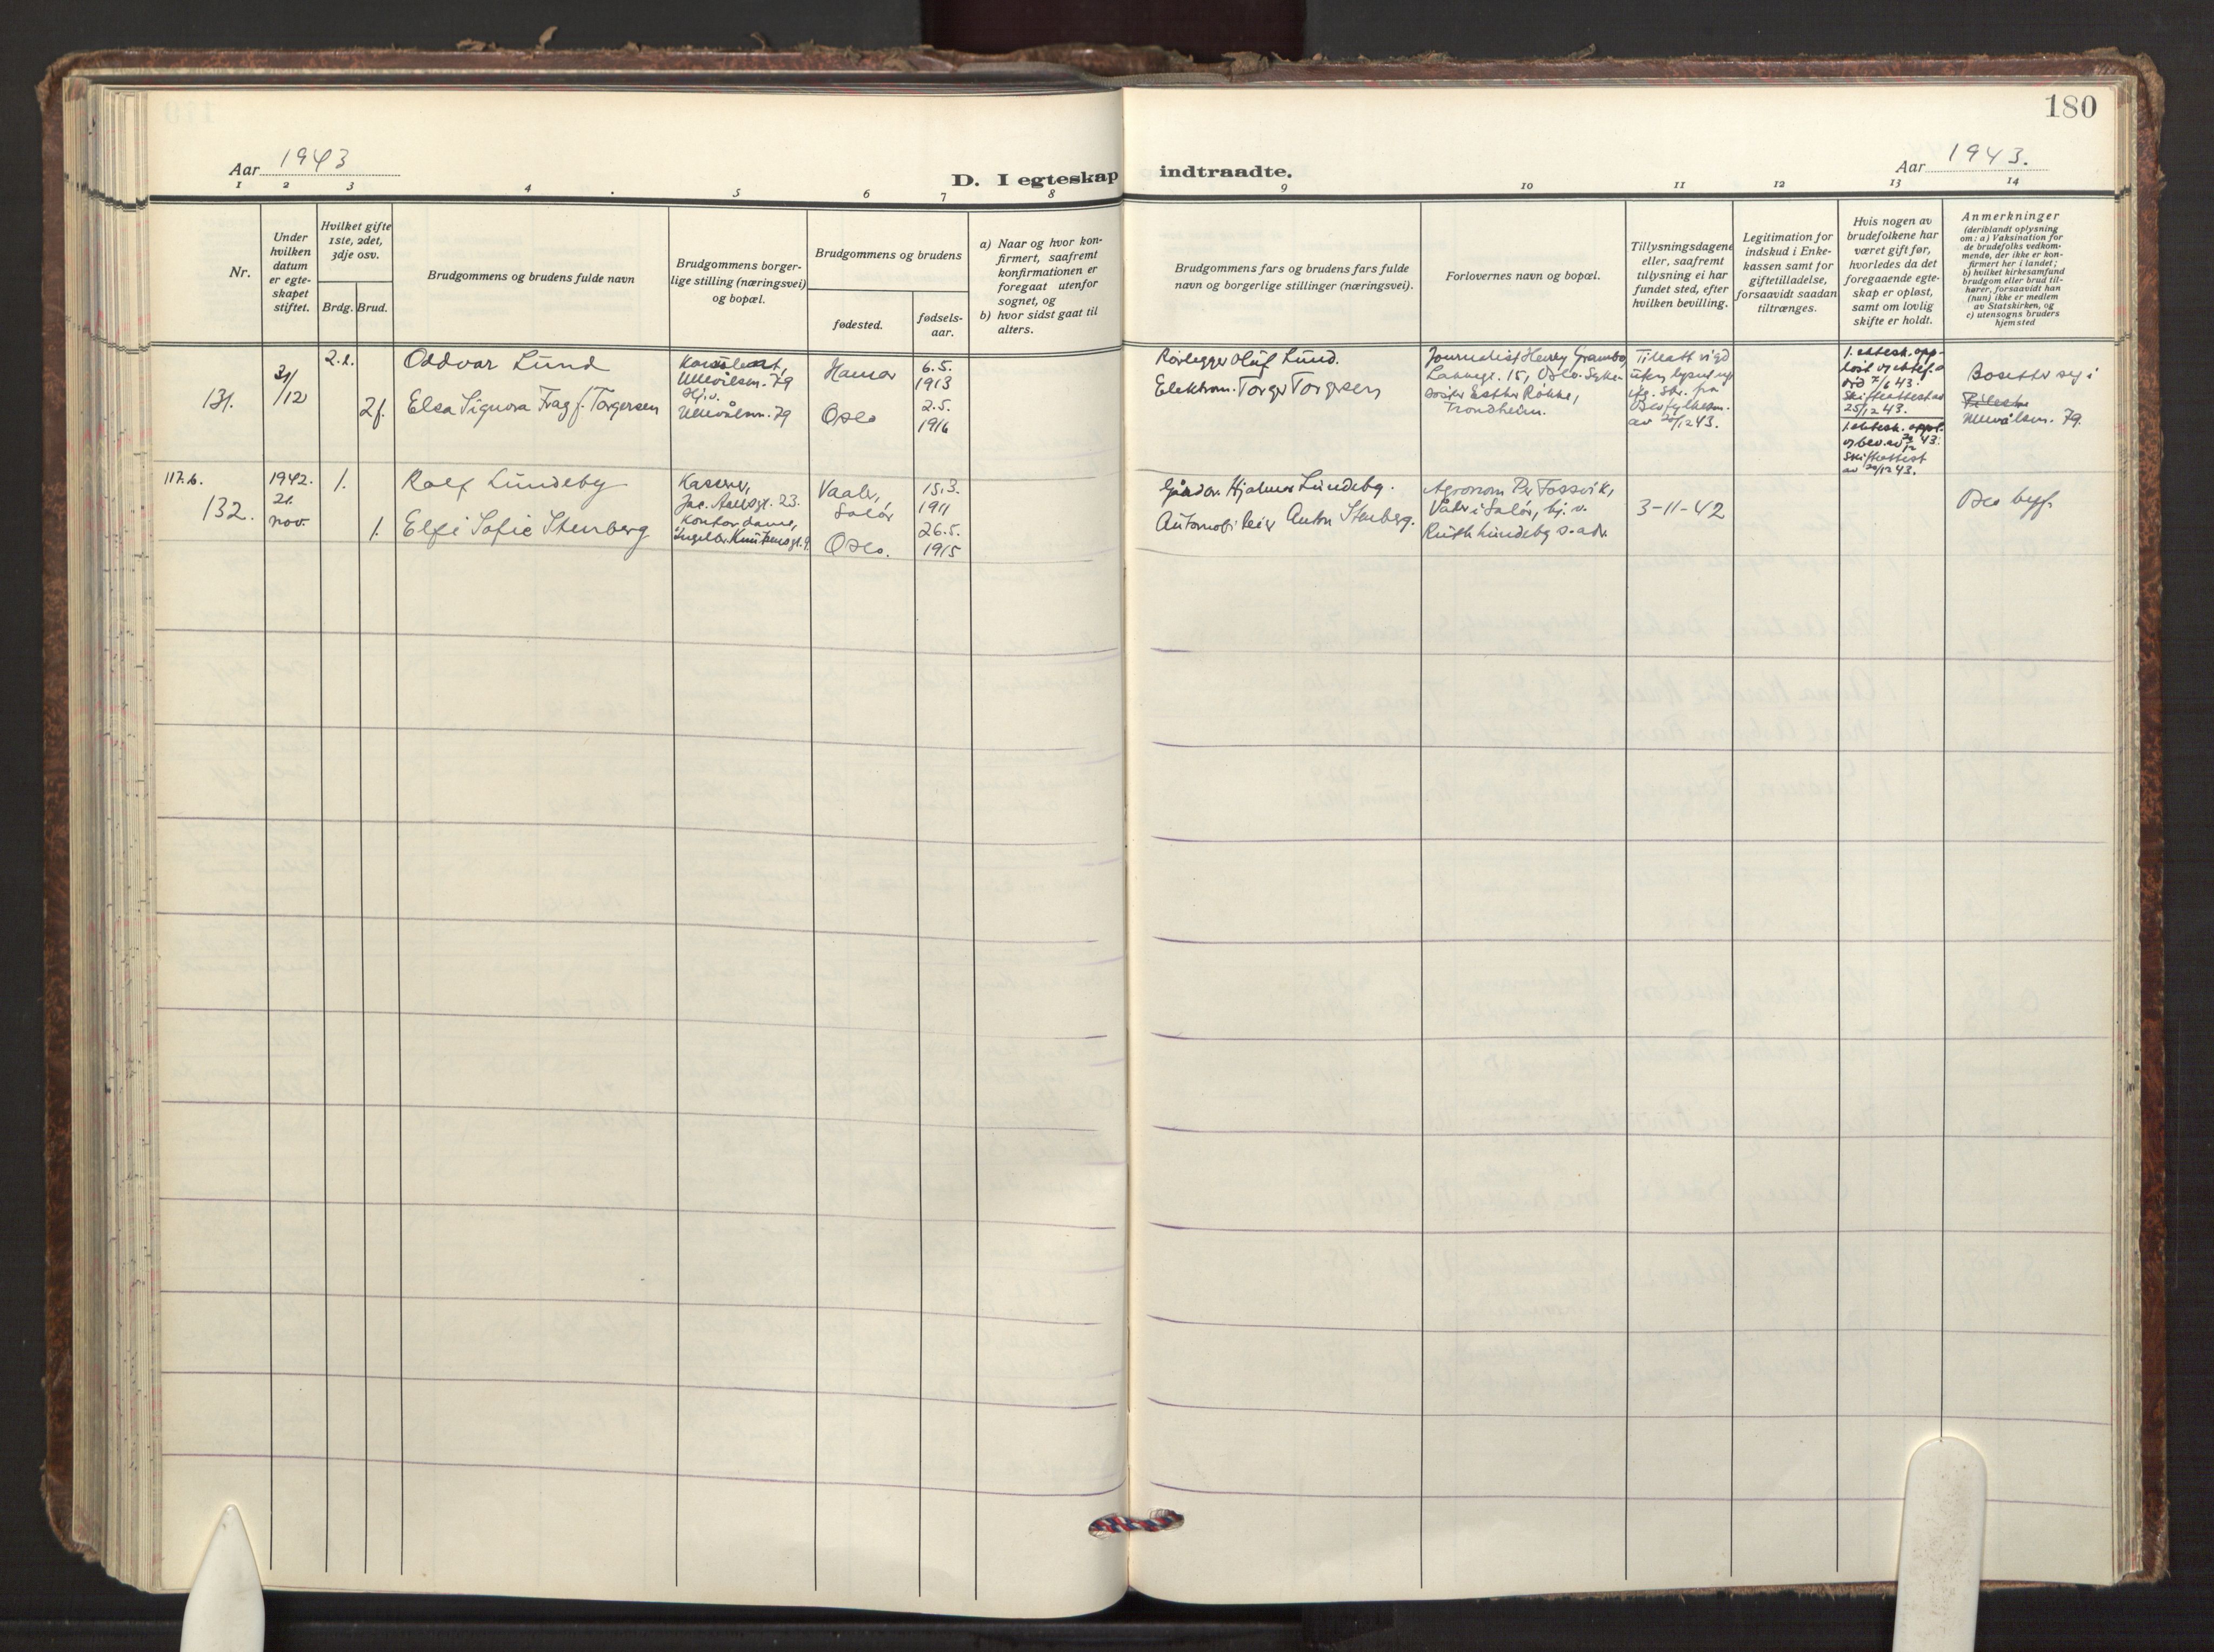 180
Aar 1943
D. I egteskap indtraadte.
Aar 1943.
1 2 3 4 5 6 7 8 9 10 11 12 13 14
Nr.
Under
hvilken
datum
er egte-
skapet
stiftet.
Hvilket gifte
1ste, 2det,
3dje osv.
Brdg. Brud.
Brudgommens og brudens fulde navn
Brudgommens borger-
lige stilling (næringsvei)
og bopæl.
Brudgommens og brudens
fødested.
fødsels-
aar.
a) Naar og hvor kon-
firmert, saafremt
konfirmationen er
foregaat utenfor
sognet, og
b) hvor sidst gaat til
alters.
Brudgommens fars og brudens fars fulde
navn og borgerlige stillinger (næringsvei).
Forlovernes navn og bopæl.
Tillysningsdagene
eller, saafremt
tillysning ei har
fundet sted, efter
hvilken bevilling.
Legitimation for
indskud i Enke-
kassen samt for
giftetilladelse,
forsaavidt saadan
tiltrænges.
Hvis nogen av
brudefolkene har
været gift før,
hvorledes da det
foregaaende egte-
skap er opløst,
samt om lovlig
skifte er holdt.
Anmerkninger
(deriblandt oplysning
om: a) Vaksination for
de brudefolks vedkom-
mende, der ikke er kon-
firmert her i landet;
b) hvilket kirkesamfund
brudgom eller brud til-
hører, forsaavidt han
(hun) ikke er medlem
av Statskirken, og
c) utensogns bruders
hjemsted
131.
31/12
2.f.
Oddvar Lund
Ullevålsvn. 79
Hamar
6.5.
1913
2f.
Elsa Signora Frag f. Torgersen
Hj.v.
Ullevålsvn. 79
Oslo
2.5.
1916
Rørlegger Oluf Lund.
Elektrom. Torger Torgersen
Journalist Henry Grambo,
15, Oslo. Syke-
søster Esther Rökke,
Trondheim.
Tillatt vigd
uten lysning
iflg. skr. fra
Oslo fylkesm.
av 20/12 43.
1. ektesk. opp-
løst
ved 7/6 43.
Skifteattest av
25/12 43.
1. ektesk. oppl.
Skifteattest
av 20/12 43.
Bosetter seg i
Ullevålsvn. 79.
117.b.
132.
1942.
21.
nov.
1.
Rolf Lundeby
Kasserer,
Jac. Aallsgt. 23.
Vaaler,
Solør
15.3.
1911
1.
Elfi Sofie Stenberg
Kontordame,
Ingelbr. Knutssonsgt. 9
Oslo.
26.5.
1915
Hjalmar Lundeby.
Automobileier Anton Stenberg.
Agronom Per Fossvik,
Våler i Solør, hj. v.
Ruth Lundeby s. adr.
3-11-42
Oslo byf.